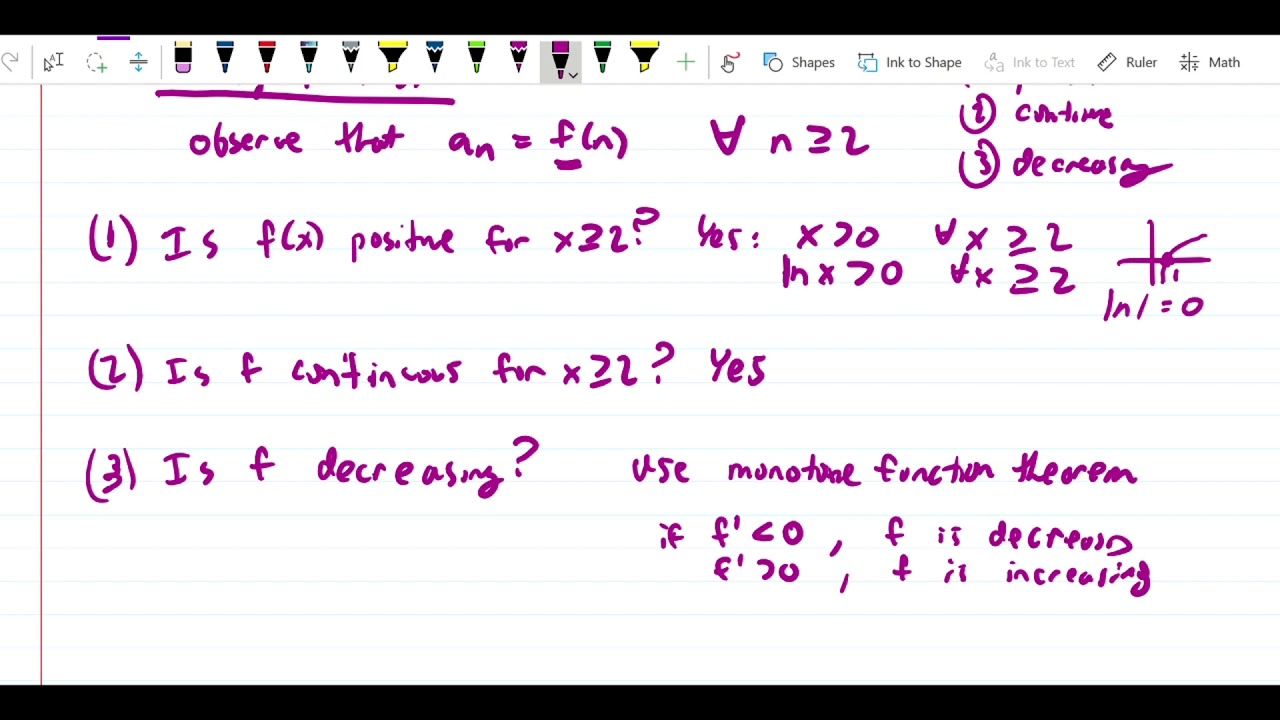 Shapes Ink to Shape Ink to Text Ruler Math
② continue
observe that aₙ = f(n) ∀ n ≥ 2
③ decreasing
(1) Is f(x) positive for x ≥ 2? Yes: x > 0 ∀ x ≥ 2
ln x > 0 ∀ x ≥ 2
ln 1 = 0
(2) Is f continuous for x ≥ 2? Yes
(3) Is f decreasing? use monotone function theorem
if f' < 0 , f is decreasing
f' > 0 , f is increasing